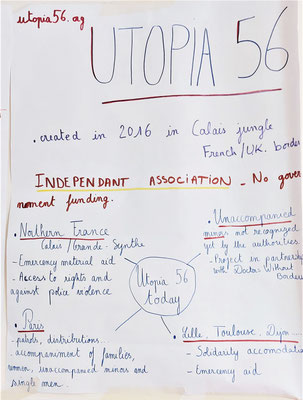 utopia56.org
UTOPIA 56
. created in 2016 in Calais jungle
French/UK. border
INDEPENDANT ASSOCIATION - No gover
nment funding.
. Northern France
Calais / Grande-Synthe
- Emergency material aid
- Access to rights and
against police violence
. Unaccompanied
minors not recognized
yet by the authorities
- Project in partnership
with Doctors Without
Borders
Utopia 56
today
. Paris
- patrols, distributions...
accompaniment of families,
women, unaccompanied minors and
single men.
. Lille, Toulouse, Dijon...
- Solidarity accomodation
- Emergency aid